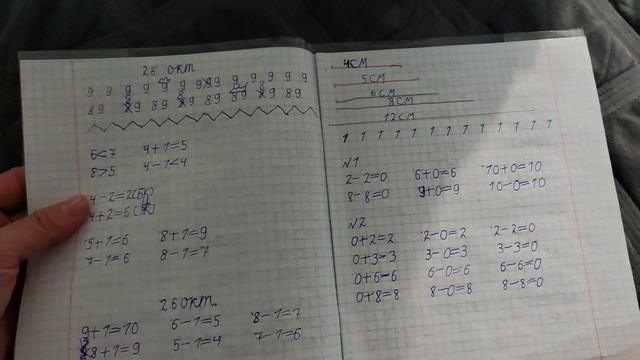 25 окт
9 9 9 9 9 9 9 9 9 9 9 9
89 89 89 89 89 89 89 89
6<7 4+1=5
8>5 4-1<4
4-2=2(БК)
4+2=6(К)
5+1=6 8+1=9
7-1=6 8-1=7
26 окт.
9+1=10 6-1=5 8-1=7
8+1=9 5-1=4 7-1=6
4СМ
5СМ
6СМ
8СМ
12СМ
1 1 1 1 1 1 1 1 1 1 1 1 1
№1
2-2=0 6+0=6 10+0=10
8-8=0 9+0=9 10-0=10
№2
0+2=2 2-0=2 2-2=0
0+3=3 3-0=3 3-3=0
0+6=6 6-0=6 6-6=0
0+8=8 8-0=8 8-8=0